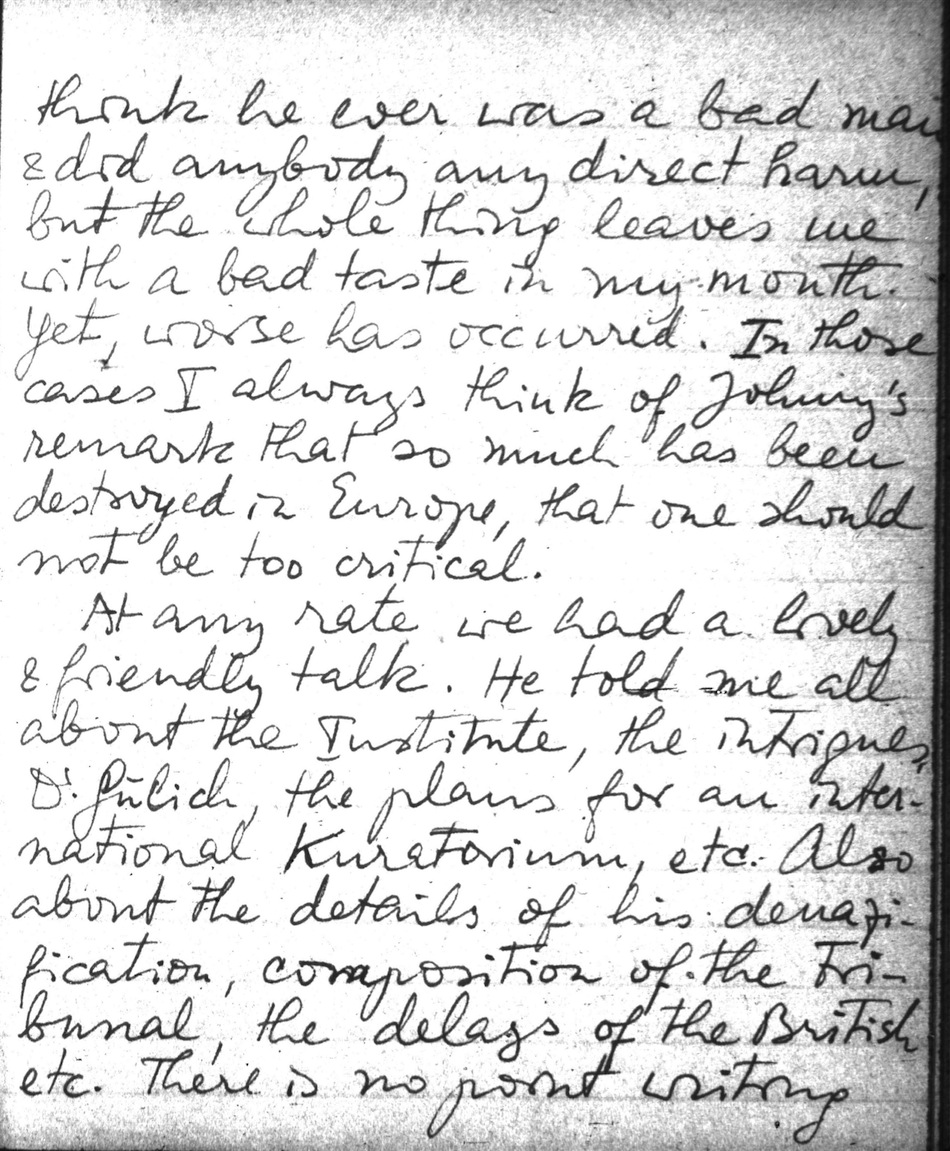 think he ever was a bad man
& did anybody any direct harm,
but the whole thing leaves me
with a bad taste in my mouth.
Yet, worse has occurred. In those
cases I always think of Johnny's
remark that so much has been
destroyed in Europe, that one should
not be too critical.
At any rate we had a lovely
& friendly talk. He told me all
about the Institute, the intrigues,
Dr. Gülich, the plans for an inter-
national Kuratorium, etc. Also
about the details of his denazi-
fication, composition of the Tri-
bunal, the delays of the British
etc. There is no point writing